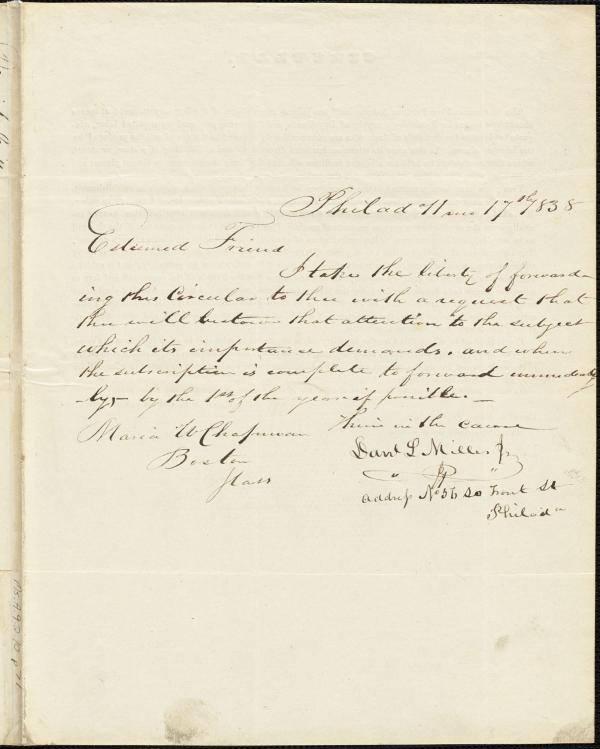 Philada 11 mo 17th 1838
Esteemed Friend
I take the liberty of forward-
ing this Circular to thee with a request that
thee will bestow that attention to the subject
which its importance demands. and when
the subscription is complete to forward immediately
by, - by the 1st of the year if possible. -
Thine in the cause
Maria W Chapman
Danl L Miller Jr
Boston
Mass
address No 56 So Front St
Philada